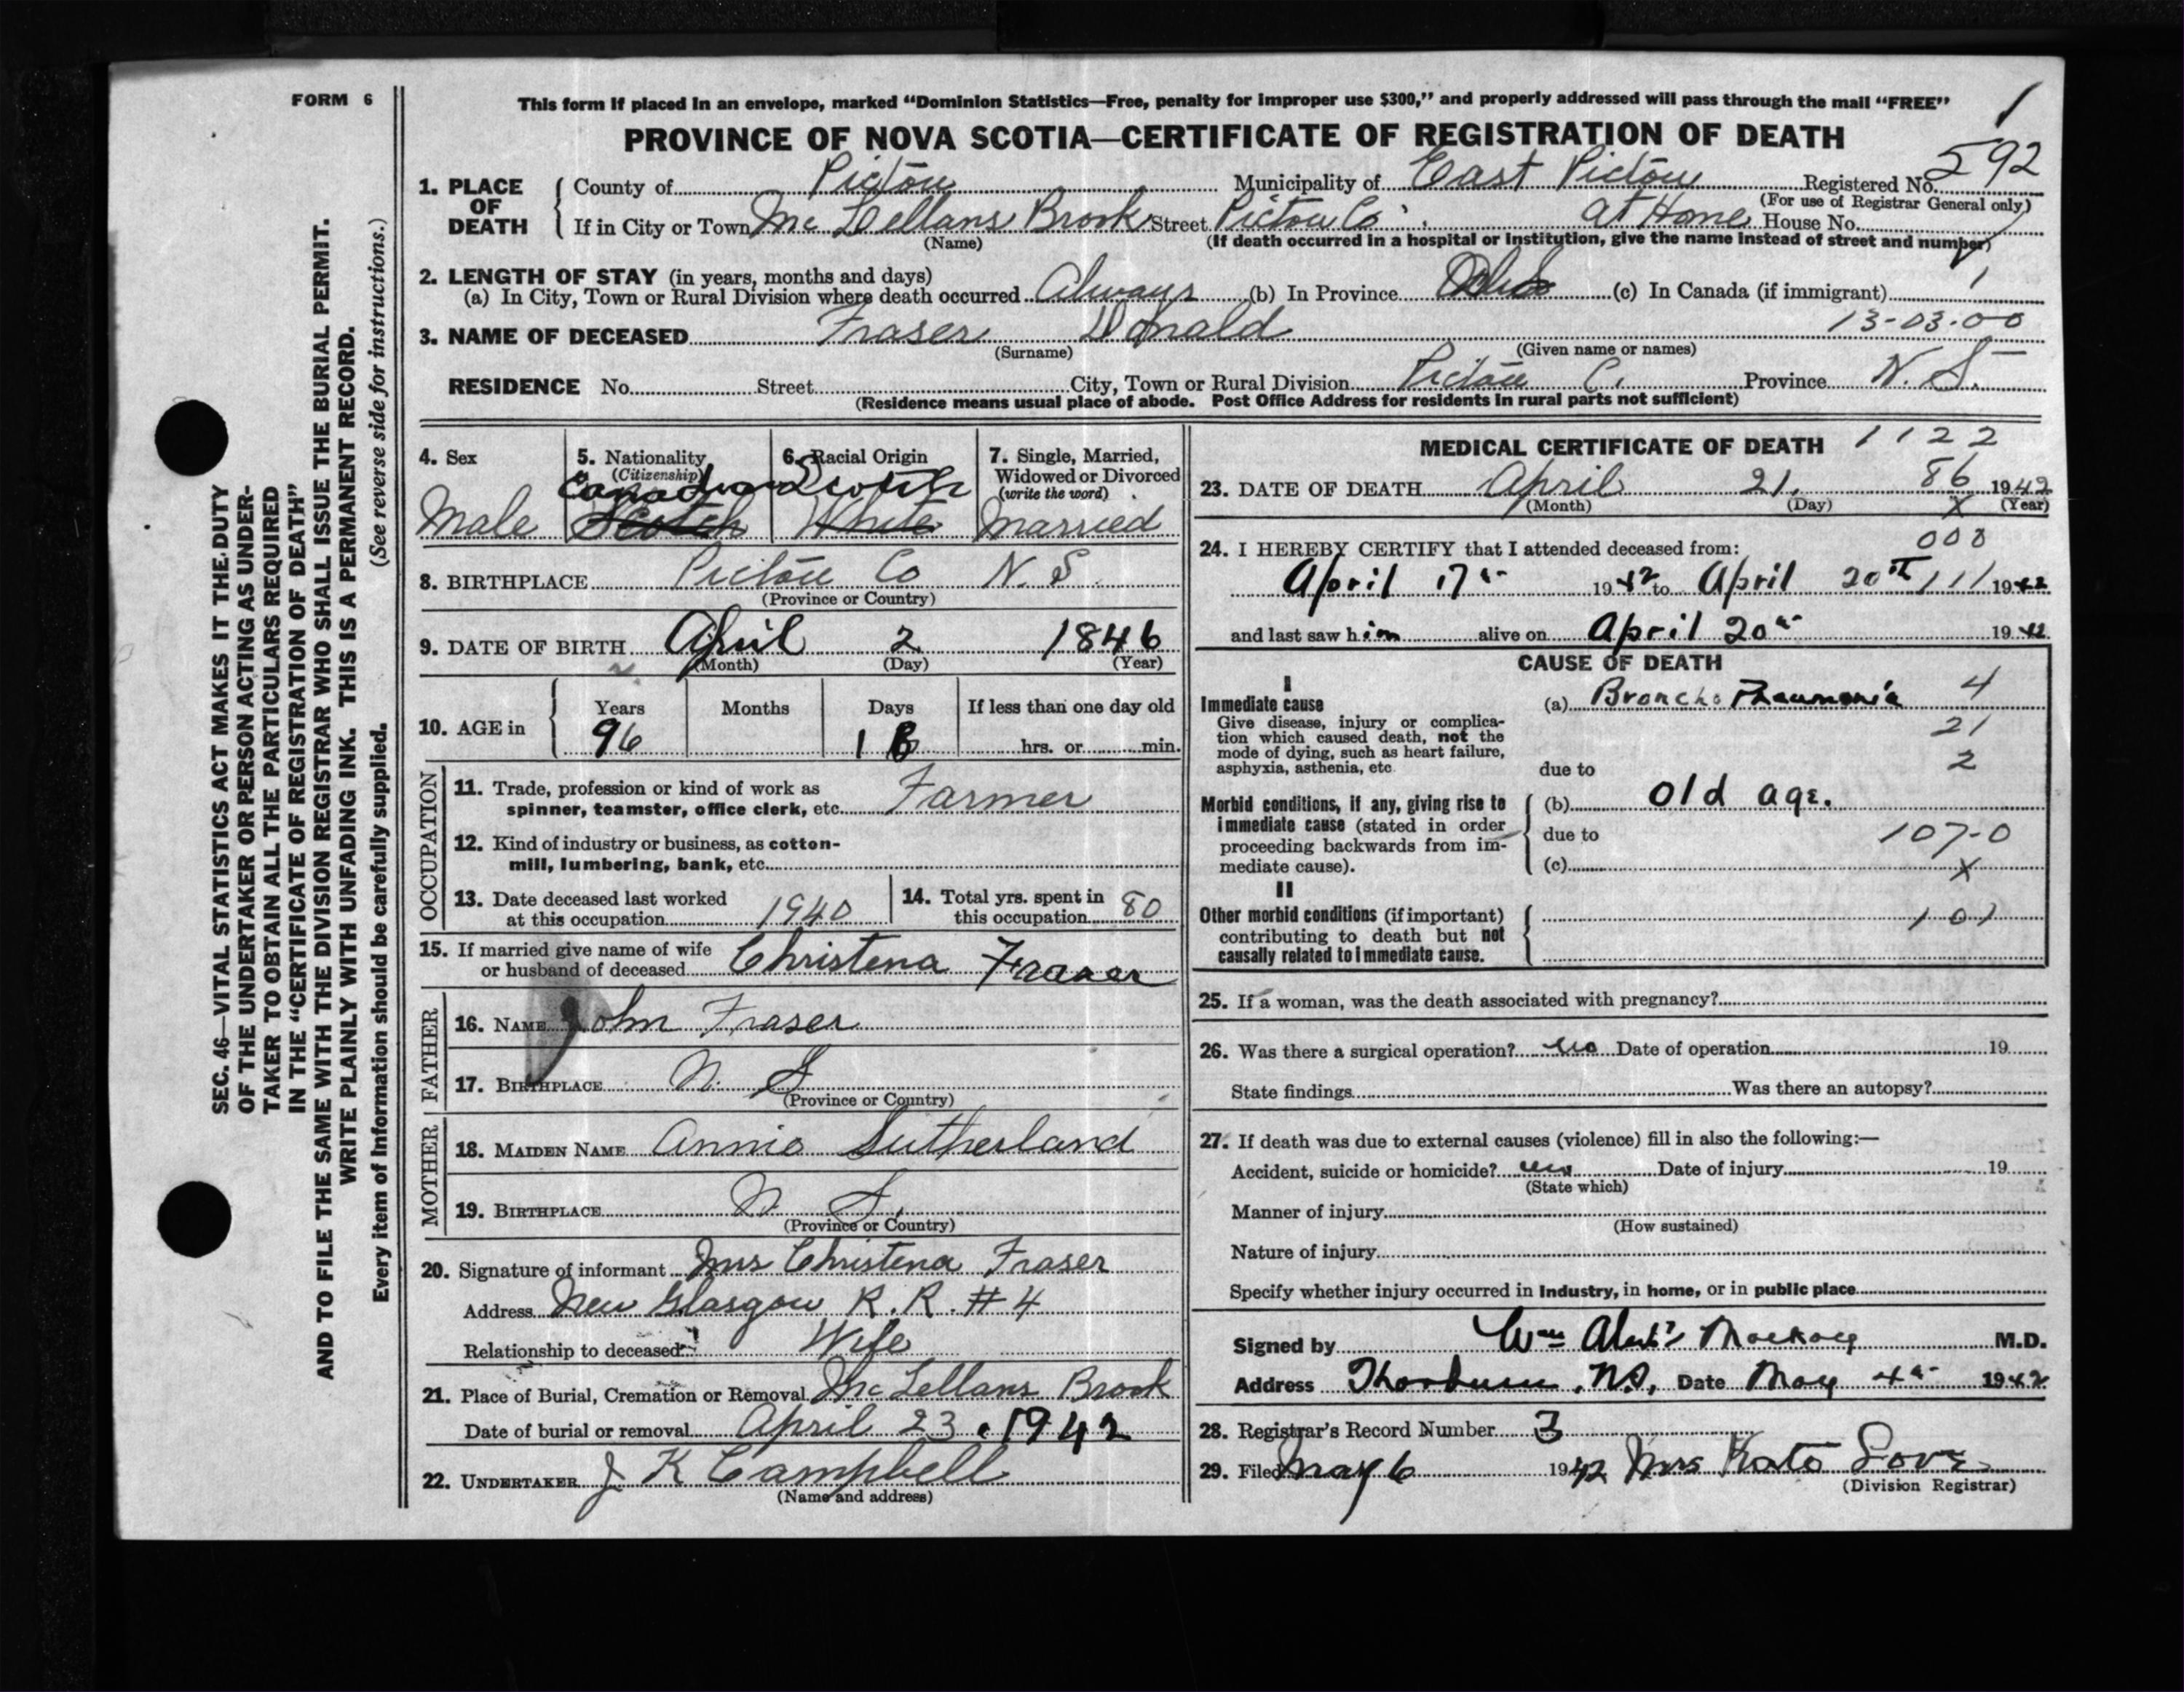 FORM 6
This form if placed in an envelope, marked “Dominion Statistics—Free, penalty for improper use $300,” and properly addressed will pass through the mail “FREE”
PROVINCE OF NOVA SCOTIA—CERTIFICATE OF REGISTRATION OF DEATH
1
1. PLACE OF DEATH County of Pictou Municipality of East Pictou Registered No. 592
(For use of Registrar General only)
If in City or Town Mc Lellans Brook Street Pictou Co. at Home House No.
(Name) (If death occurred in a hospital or institution, give the name instead of street and number)
2. LENGTH OF STAY (in years, months and days)
(a) In City, Town or Rural Division where death occurred Always (b) In Province (c) In Canada (if immigrant)
13-03-00
3. NAME OF DECEASED Fraser Donald
(Surname) (Given name or names)
RESIDENCE No. Street City, Town or Rural Division Pictou C. Province N. S.
(Residence means usual place of abode. Post Office Address for residents in rural parts not sufficient)
4. Sex 5. Nationality (Citizenship) 6. Racial Origin 7. Single, Married, Widowed or Divorced (write the word)
Canadian Scotch
Male Scotch White Married
8. BIRTHPLACE Pictou Co N. S.
(Province or Country)
9. DATE OF BIRTH April 2 1846
(Month) (Day) (Year)
10. AGE in Years Months Days If less than one day old
96 18 hrs. or min.
OCCUPATION
11. Trade, profession or kind of work as spinner, teamster, office clerk, etc. Farmer
12. Kind of industry or business, as cotton-mill, lumbering, bank, etc.
13. Date deceased last worked at this occupation 1940
14. Total yrs. spent in this occupation 80
15. If married give name of wife or husband of deceased Christena Fraser
FATHER
16. NAME John Fraser
17. BIRTHPLACE N. S
(Province or Country)
MOTHER
18. MAIDEN NAME Annie Sutherland
19. BIRTHPLACE N. S.
(Province or Country)
20. Signature of informant Mrs Christena Fraser
Address New Glasgow R. R. # 4
Relationship to deceased Wife
21. Place of Burial, Cremation or Removal Mc Lellans Brook
Date of burial or removal April 23. 1942
22. UNDERTAKER J K Campbell
(Name and address)
MEDICAL CERTIFICATE OF DEATH 1122
23. DATE OF DEATH April 21. 86 1942
(Month) (Day) X (Year)
24. I HEREBY CERTIFY that I attended deceased from: 000
April 17th 1942 to April 20th 111 1942
and last saw him alive on April 20th 1942
CAUSE OF DEATH
I
Immediate cause (a) Broncho Pneumonia 4
Give disease, injury or complication which caused death, not the mode of dying, such as heart failure, asphyxia, asthenia, etc. 21
due to 2
Morbid conditions, if any, giving rise to immediate cause (stated in order proceeding backwards from immediate cause). (b) Old age.
due to 107-0
(c) X
II
Other morbid conditions (if important) contributing to death but not causally related to immediate cause. 101
25. If a woman, was the death associated with pregnancy?
26. Was there a surgical operation? no Date of operation 19
State findings Was there an autopsy?
27. If death was due to external causes (violence) fill in also the following:—
Accident, suicide or homicide? no Date of injury 19
(State which)
Manner of injury
(How sustained)
Nature of injury
Specify whether injury occurred in Industry, in home, or in public place
Signed by Wm Mackay M.D.
Address Thorburn, N.S. Date May 4th 1942
28. Registrar's Record Number 3
29. Filed May 6 1942 Mrs Kate Love
(Division Registrar)
SEC. 46—VITAL STATISTICS ACT MAKES IT THE DUTY
OF THE UNDERTAKER OR PERSON ACTING AS UNDER-
TAKER TO OBTAIN ALL THE PARTICULARS REQUIRED
IN THE “CERTIFICATE OF REGISTRATION OF DEATH”
AND TO FILE THE SAME WITH THE DIVISION REGISTRAR WHO SHALL ISSUE THE BURIAL PERMIT.
WRITE PLAINLY WITH UNFADING INK. THIS IS A PERMANENT RECORD.
Every item of information should be carefully supplied. (See reverse side for instructions.)